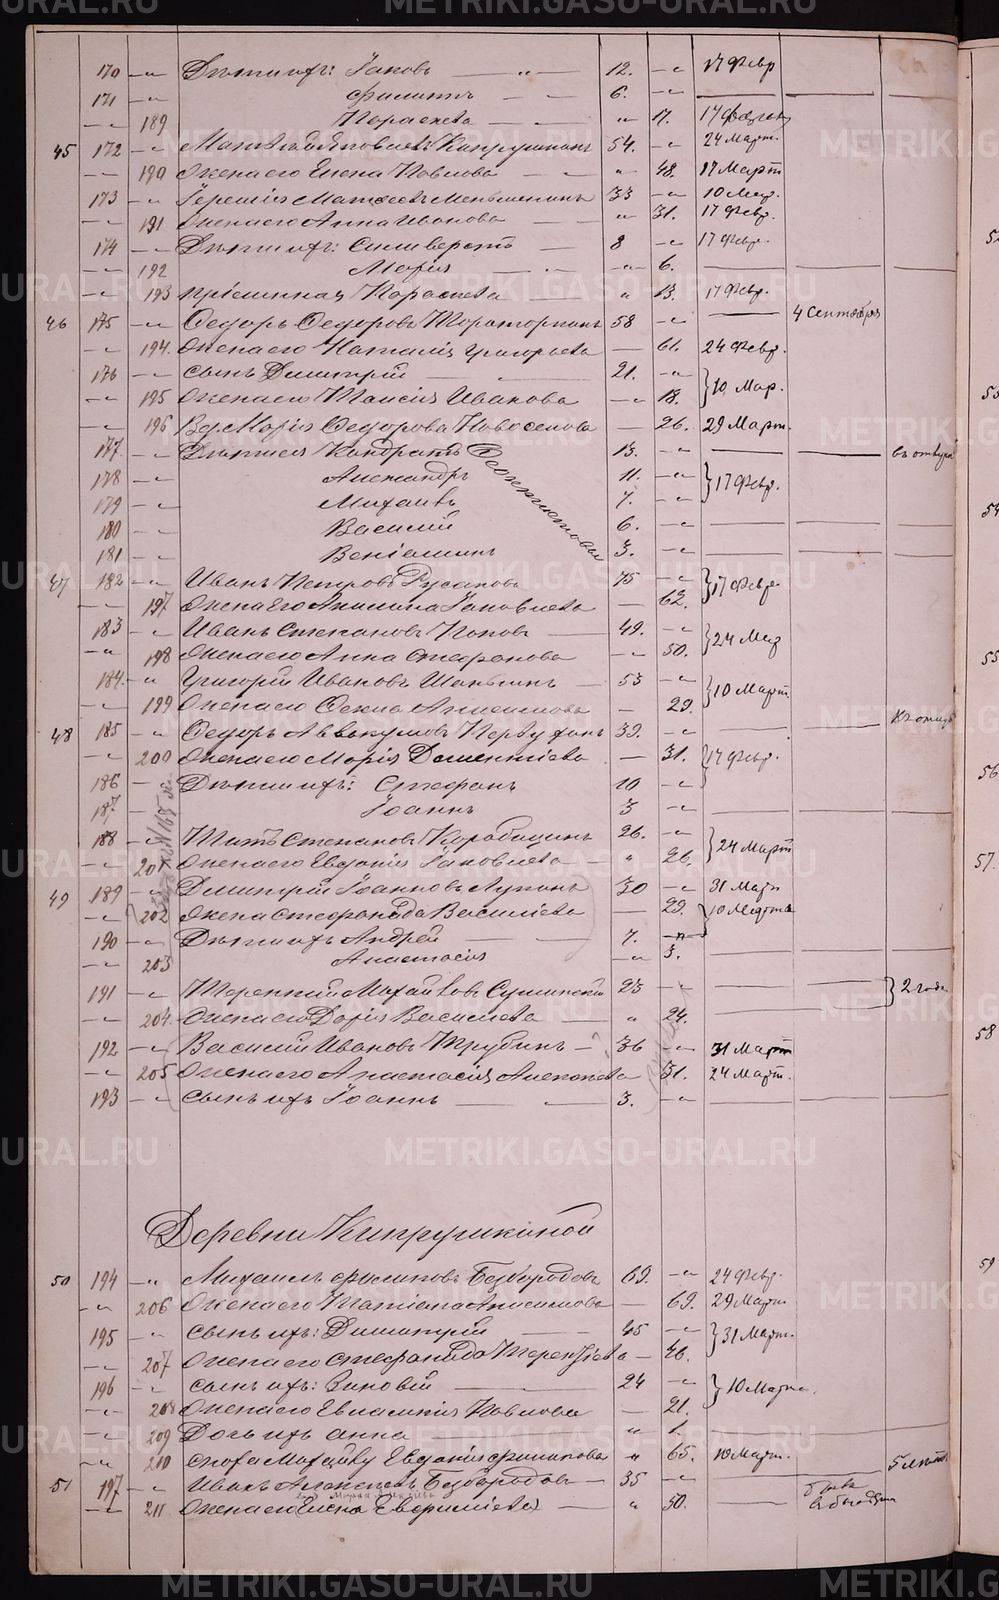 170 -„- Дѣти ихъ: Іаковъ — „ — 12. -„- 17 Февр
171 -„- Филиппъ — — 6. -„- — — —
-„- 189 Параскева — — „ 17. 17 Февраля
45 172 -„- Матвѣй Яковлевъ Кипрушкинъ 54. -„- 24 Март.
-„- 190 Жена его Елена Павлова — — „ 48. 17 Март
173 -„- Матвѣевъ Меньшенинъ 33 -„- 10 Мар.
-„- 191 Жена его Анна Иванова — „ 31. 17 Февр.
174 -„- Дѣти ихъ: Силиверстъ — 8 -„- 17 Февр.
-„- 192 Марія — „ — -„- 6. — — —
-„- 193 Пріемышная Параскева — „ 13. 17 Февр.
46 175 -„- Ѳедоръ Ѳедоровъ 58 -„- — 4 Сентября
-„- 194. Жена его Наталія Григорьева — 61. 24 Февр.
176 -„- Сынъ Димитрій — — 21. -„-
-„- 195 Жена его Таисія Иванова -„- 18. } 10 Мар.
196 Вд. Марія Ѳедорова Новоселова — 26. 29 Март.
177 -„- Дѣти ея Кондратъ Ѳеоктистовы 13. -„- — —
178 -„- Александръ 11. -„-
179 -„- Михаилъ 7. -„- } 17 Февр.
180 -„- Василій 6. -„- — — —
181 -„- Веніаминъ 3. -„- — — —
47 182 -„- Иванъ Петровъ Русаковъ 75 -„-
-„- 197 Жена его Акилина Іаковлева — 62. } 17 Февр.
183 -„- Иванъ Степановъ Поповъ — 49. -„-
-„- 198 Жена его Анна Стефанова -„- 50. } 24 Мар
184. -„- Григорій Ивановъ Шаньгинъ — 53 -„-
-„- 199 Жена его Анисимова — 29. } 10 Март.
48 185 -„- Ѳедоръ Аввакумовъ Первухинъ 39. -„- — —
-„- 200 Жена его Марія Дементіева — 31. } 17 Февр.
186 — Дѣти ихъ: Стефанъ 10 -„-
187 — Іоаннъ 3 -„- — — —
188 -„- Титъ Степановъ Карабицинъ 26. -„-
-„- 201 Жена его Евдокія Іаковлева — „ 26. } 24 Март
49 189 -„- Димитрій Іоанновъ Лупинъ 30 -„- 31 Март
-„- 202 Жена Стефанида Василіева — 29. } 10 Марта
190 -„- Дѣти ихъ Андрей — — 7. -„-
-„- 203 Анастасія -„- 3. — — —
191 -„- Терентій Михайловъ Сушинскій 23 -„- — — } 2 года
-„- 204. Жена его Дарія Василіева — „ 24. — —
192 -„- Василій Ивановъ Трубинъ — 36 -„- 31 Март
-„- 205 Жена его Анастасія Алексѣева 31. 24 Март.
193 -„- Сынъ ихъ Іоаннъ — — 3. -„- — — —
Деревни Кипрушкиной
50 194 -„- Михаилъ Филиповъ Безбородовъ 69. -„- 24 Февр.
-„- 206 Жена его Татіана Анисимова — 69. 29 Март
195 -„- Сынъ ихъ: Димитрій — 45 -„-
-„- 207 Жена его Стефанида Терентіева — 46. } 31 Март.
196 -„- Сынъ ихъ: Зиновій — 24 -„-
-„- 208 Жена его Евлампія Павлова — 21. } 10 Марта.
-„- 209 Дочь ихъ Анна — — „ 1. — — —
-„- 210 Сноха Михаилу Евдокія Филипова „ 65. 10 Март. 5 лѣтъ
51 197 -„- Иванъ Алексѣевъ Безбородовъ — 35 -„- — —
-„- 211 Жена его Елена — „ 30. —